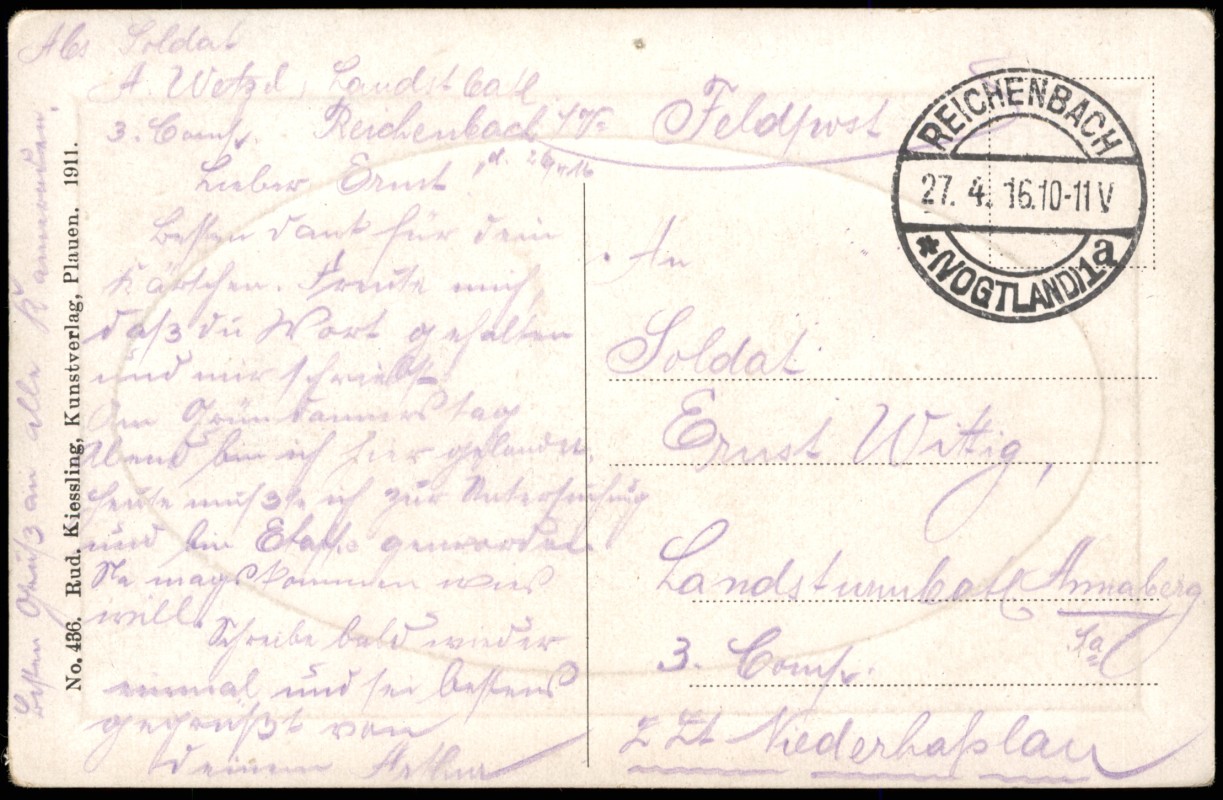 Abs. Soldat
A. Wetzel, Landst. Batl.
3. Comp. Reichenbach i/V.
d. 26/4 16
Lieber Ernst!
Besten Dank für dein
Kärtchen. Freute mich,
daß du Wort gehalten
und mir schriebst.
Am Gründonnerstag
Abend bin ich hier gelandet.
Heute mußte ich zur Untersuchung
und bin geworden.
Na mags kommen wies
will.
Schreibe bald wieder
einmal und sei bestens
gegrüßt von
deinem Arthur
Besten Gruß an alle Kameraden.
No. 436. Rud. Kiessling, Kunstverlag, Plauen. 1911.
Feldpost
REICHENBACH
27. 4. 16. 10-11 V
* (VOGTLAND) 1a
An
Soldat
Ernst Wittig,
Landsturmbatl. Annaberg
3. Comp.
z Zt Niederhaßlau